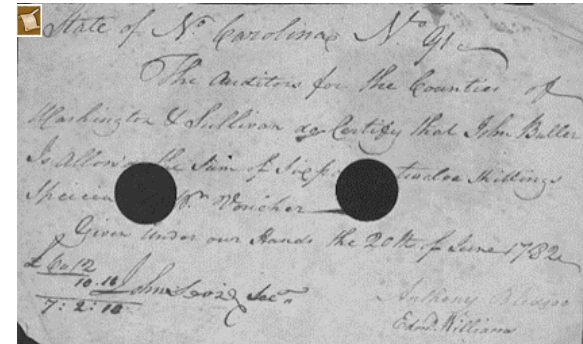 State of No. Carolina No 91
The Auditors for the Counties of
Washington & Sullivan do Certify that John Butler
Is Allow'd the Sum of Six po twelve Shillings
Specie Voucher
Given under our Hands the 20th of June 1782
£ 6..12
10.10
7:2:10
John Secy
Anthony Bledsoe
Edmd. Williams